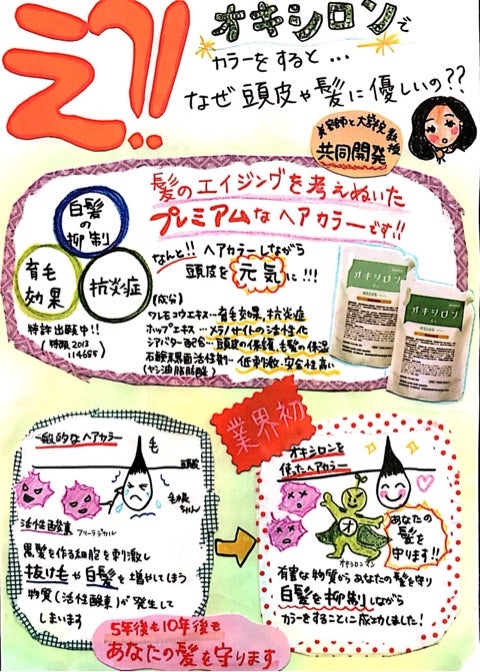 えっ!!
オキシロンで
カラーをすると…
なぜ頭皮や髪に優しいの??
美容師と大学院教授
共同開発
髪のエイジングを考えぬいた
プレミアムなヘアカラーです!!
白髪の抑制
育毛効果
抗炎症
特許出願中!!
(特願2013
114685)
なんと!! ヘアカラーしながら
頭皮を元気に!!!
(成分)
ワレモコウエキス…育毛効果,抗炎症
ホップエキス…メラノサイトの活性化
シアバター配合…頭皮の保護,毛髪の保湿
石鹸系界面活性剤…低刺激,安全性高い
(ヤシ油脂肪酸)
オキシロン
オキシロン
業界初
一般的なヘアカラー
毛
頭皮
毛母ちゃん
活性酸素
フリーラジカル
黒髪を作る細胞を刺激し
抜け毛や白髪を増やしてしまう
物質(活性酸素)が発生して
しまいます
オキシロンを
使ったヘアカラー
オ
オキシロンマン
あなたの
髪を
守ります!!
有害な物質からあなたの髪を守り
白髪を抑制しながら
カラーをすることに成功しました!
5年後も10年後も
あなたの髪を守ります